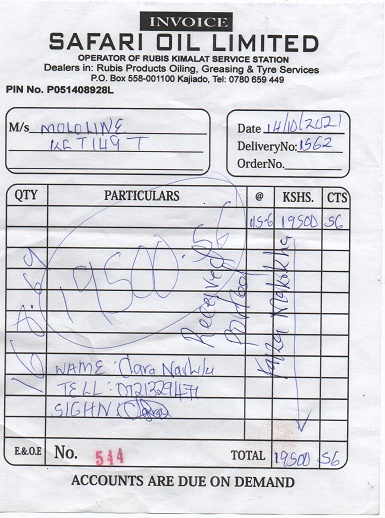 INVOICE
SAFARI OIL LIMITED
OPERATOR OF RUBIS KIMALAT SERVICE STATION
Dealers in: Rubis Products Oiling, Greasing & Tyre Services
P.O. Box 558-001100 Kajiado, Tel: 0780 659 449
PIN No. P051408928L
M/s MOLOLINE
KCT 149 T
Date 14/10/2021
DeliveryNo: 1562
OrderNo.
QTY PARTICULARS @ KSHS. CTS
115.6 19500 56
168.69
19500.56
Received
NAME: Clara
TELL: 0721329471
SIGHN
E.&O.E No. 544 TOTAL 19500 56
ACCOUNTS ARE DUE ON DEMAND